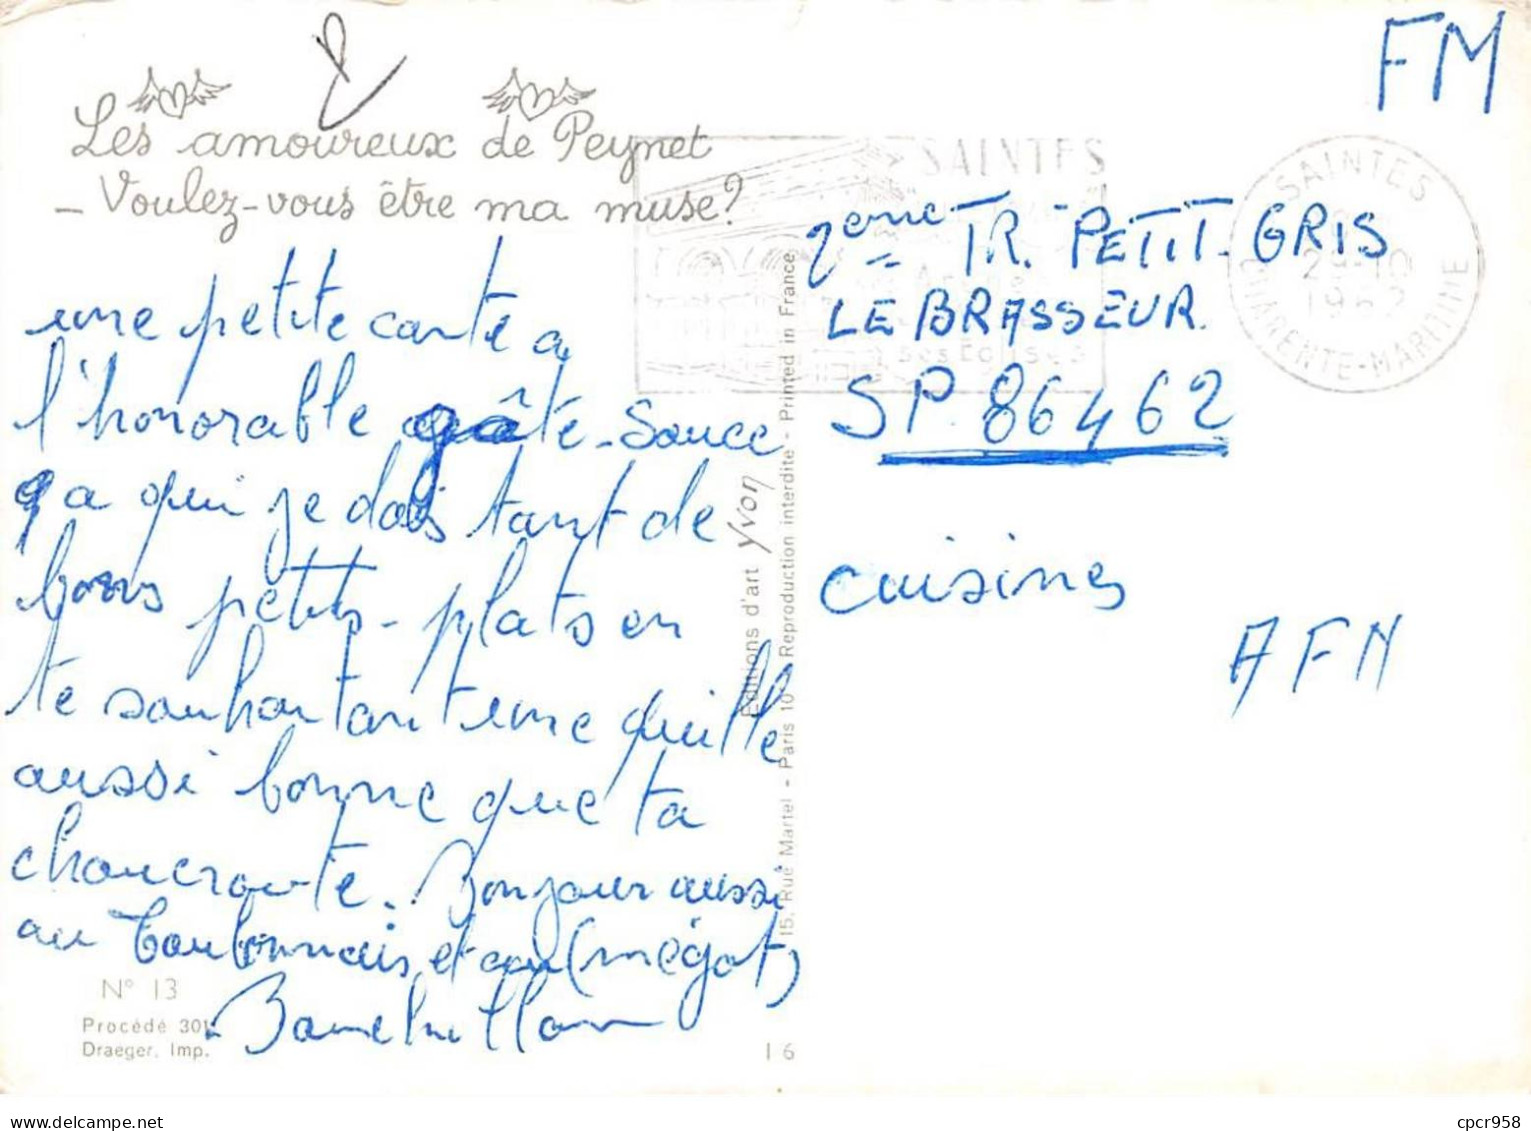 Les amoureux de Peynet
- Voulez-vous être ma muse?
une petite carte a
l'honorable gâte-Sauce
a qui je dois tant de
bons petits-plats en
te souhaitant une quille
aussi bonne que ta
choucroute. Bonjour aussi
au Toulonnais et au (mégot)
N° 13
Procédé 301
Draeger, Imp.
Editions d'art Yvon
15, Rue Martel - Paris 10 Reproduction interdite - Printed in France
I 6
FM
SAINTES
ses Eglises
SAINTES
29-10
CHARENTE-MARITIME
2eme TR. PETIT-GRIS
LE BRASSEUR.
SP. 86462
cuisines
AFN
cpcr958